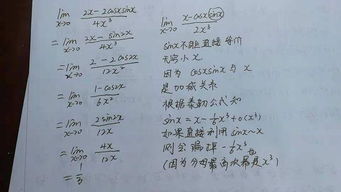 lim x→0 2x-2cosxsinx / 4x³
= lim x→0 2x-sin2x / 4x³
= lim x→0 2-2cos2x / 12x²
= lim x→0 1-cos2x / 6x²
= lim x→0 2sin2x / 12x
= lim x→0 4x / 12x
= 1/3
lim x→0 x-cosxsinx / 2x³
sinx不能直接等价
无穷小x
因为 cosxsinx与x
是加减关系
根据泰勒公式知
sinx = x - 1/6x³ + o(x³)
如果直接利用sinx~x
则会漏掉 -1/6x³
(因为分母最高次幂是x³)